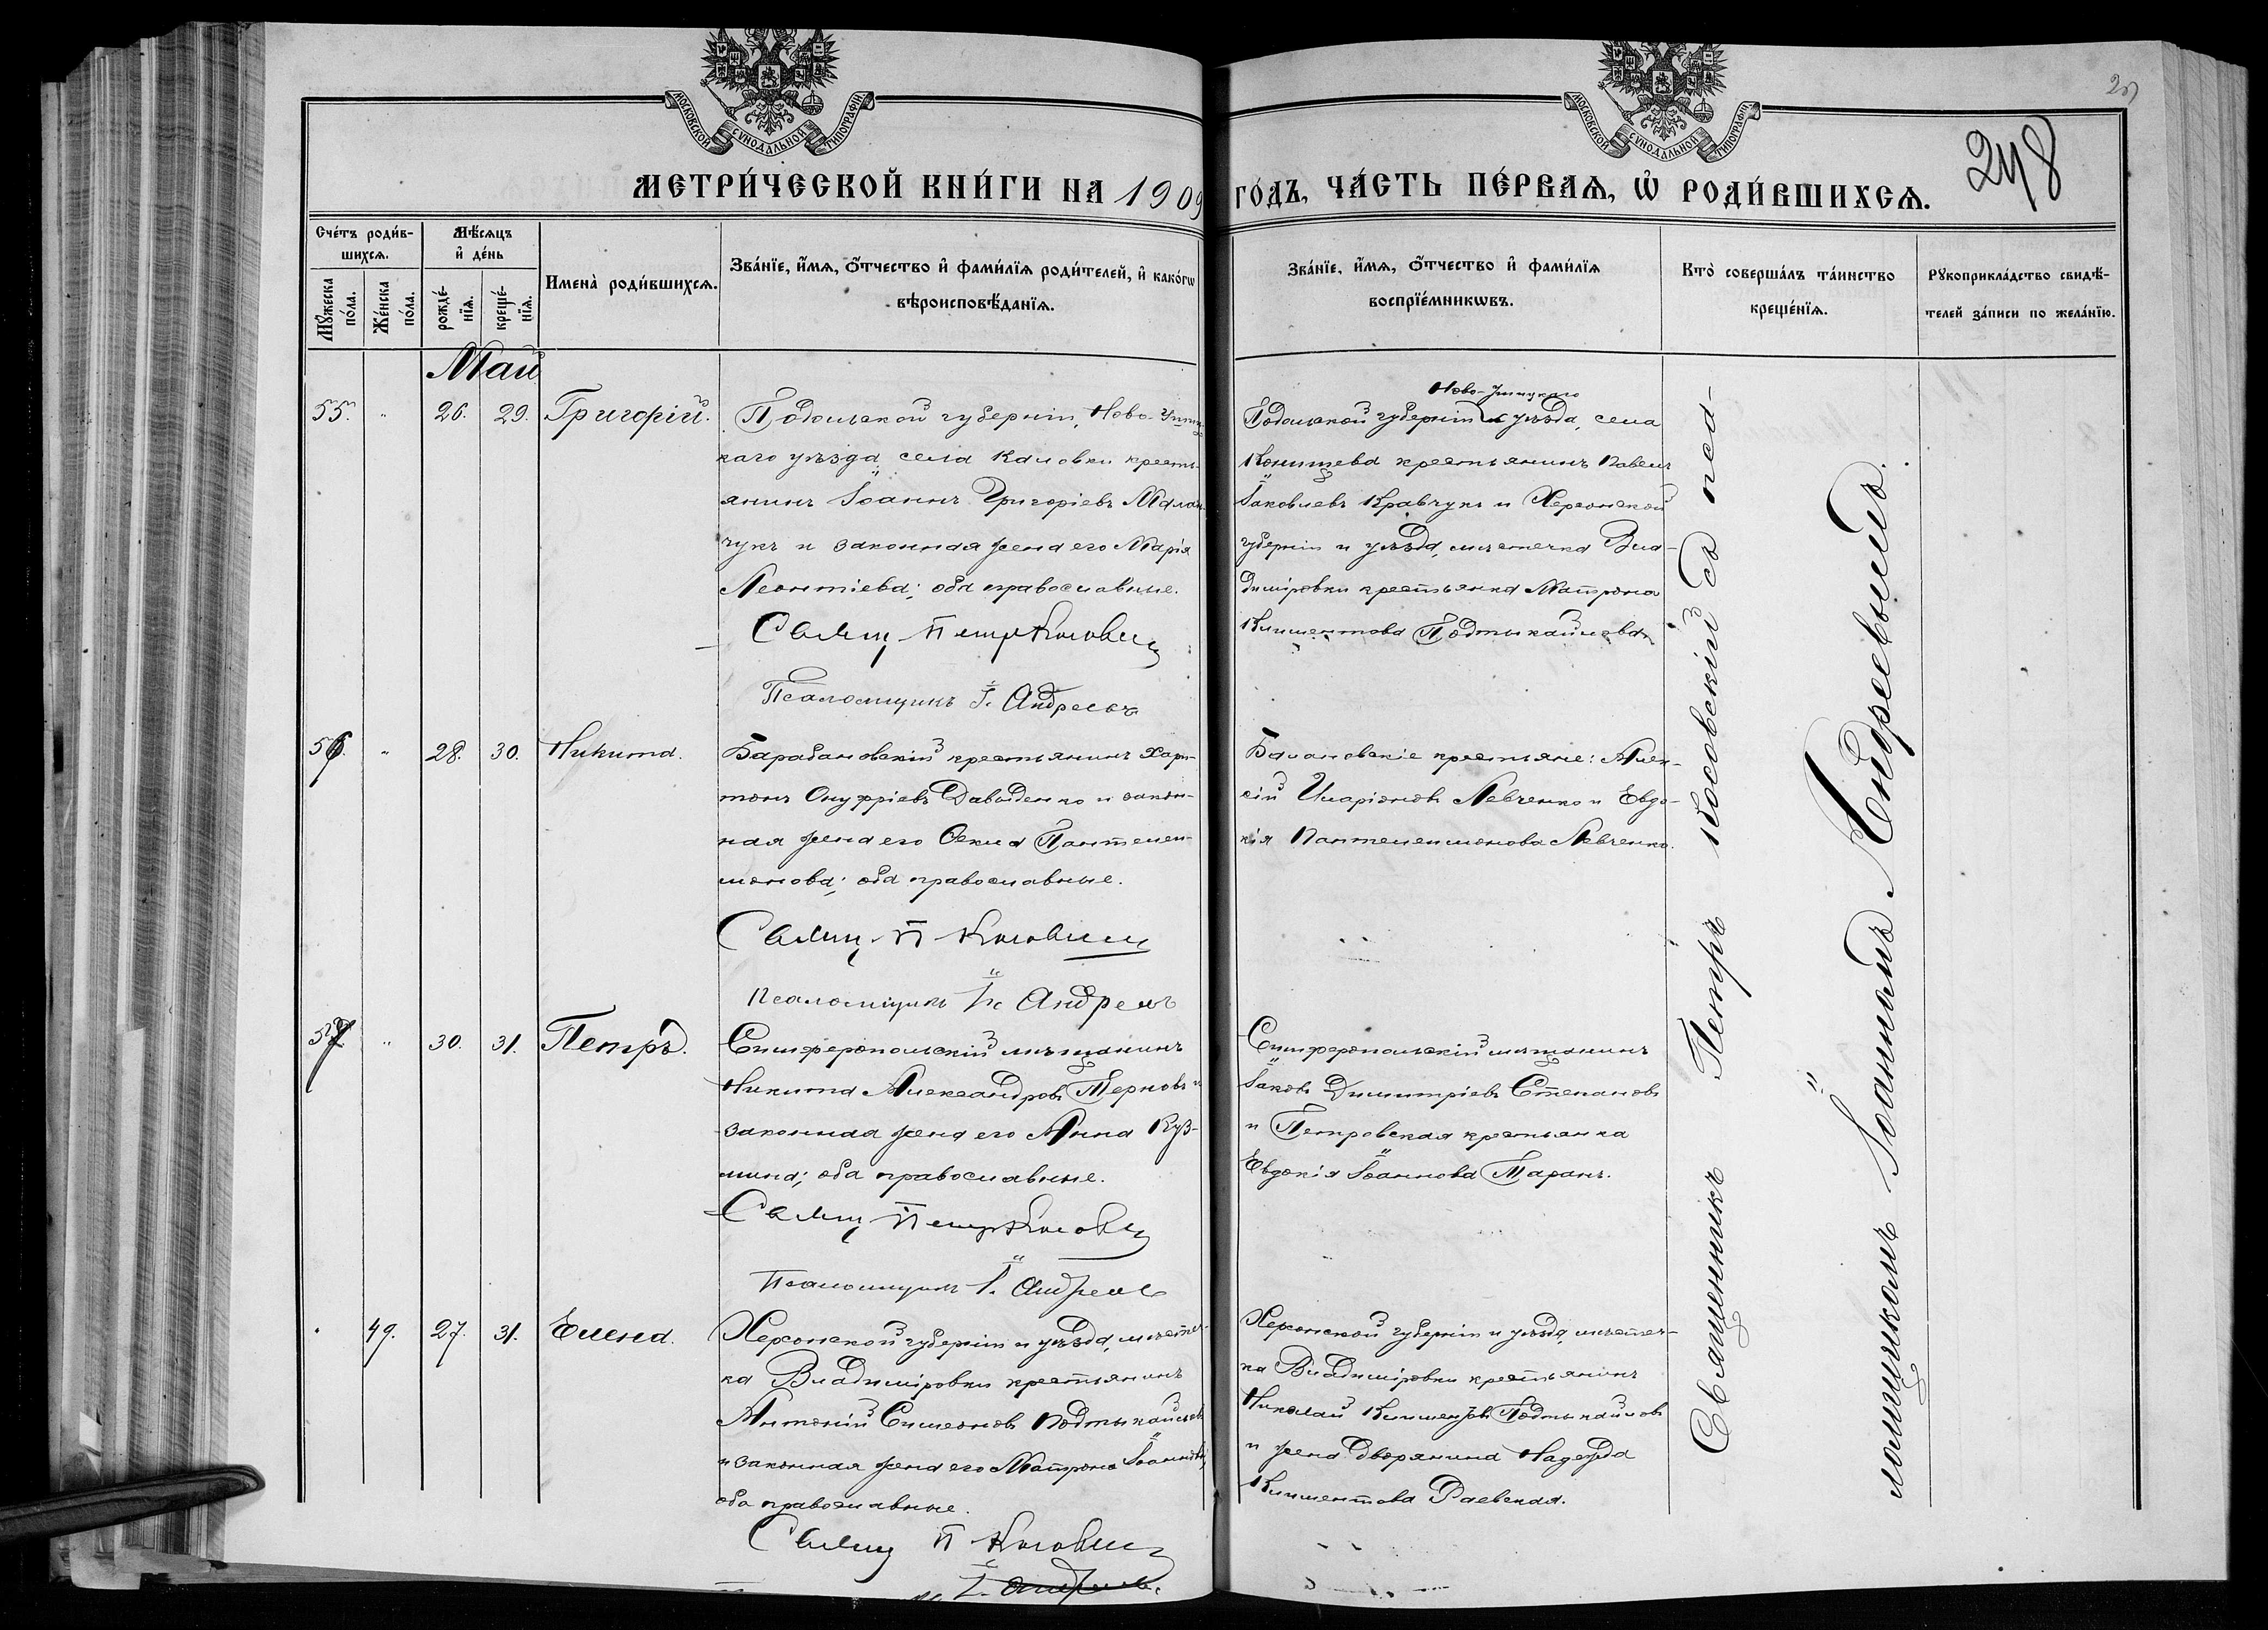 МОСКОВСКОЙ СѴНОДАЛЬНОЙ ТИПОГРАФІИ
МОСКОВСКОЙ СѴНОДАЛЬНОЙ ТИПОГРАФІИ
248
МЕТРИ́ЧЕСКОЙ КНИ́ГИ НА 1909 ГО́ДЪ, ЧА́СТЬ ПЕ́РВАѦ, Ѡ҆ РОДИ́ВШИХСѦ.
Сче́тъ роди́в-
шихсѧ.
Мѣ́сѧцъ
и҆ де́нь
Мꙋ́жеска
по́ла.
Же́нска
по́ла.
рожде́-
нїѧ.
креще́-
нїѧ.
Имена̀ роди́вшихсѧ.
Зва́нїе, и҆́мѧ, ѻ҆́тчество и҆ фами́лїѧ роди́телей, и҆ како́гѡ
вѣроисповѣ́данїѧ.
Зва́нїе, и҆́мѧ, ѻ҆́тчество и҆ фами́лїѧ
воспрїе́мникѡвъ.
Кто̀ соверша́лъ та́инство
креще́нїѧ.
Рꙋкоприкла́дство свидѣ́-
телей за́писи по жела́нїю.
Май
55. " 26. 29. Григорій.
Подольской губерніи, Ново-Ушиц-
каго уѣзда села Каловки кресть-
янинъ Іоаннъ Григоріевъ Малан-
чукъ и законная жена его Марія
Леонтіева; оба православные.
Свящ. Петръ Косовскій
Псаломщикъ І. Андреевъ
Ново-Ушицкаго
Подольской губерніи уѣзда, села
Конищева крестьянинъ Павелъ
Іаковлевъ Кравчукъ и Херсонской
губерніи и уѣзда, мѣстечка Вла-
диміровки крестьянка Матрона
Климентова Подтыкайлова.
56. " 28. 30. Никита.
Барабановскій крестьянинъ Хари-
тонъ Онуфріевъ Давыденко и закон-
ная жена его Ѳекла Пантелеи-
монова; оба православные.
Свящ. П. Косовскій
Псаломщикъ І. Андреевъ
Балановскіе крестьяне: Алек-
сій Иларіоновъ Левченко и Евдо-
кія Пантелеимонова Левченко.
57. " 30. 31. Петръ.
Симферопольскій мѣщанинъ
Никита Александровъ Терновъ и
законная жена его Анна Куз-
мина; оба православные.
Свящ. Петръ Косовскій
Псаломщикъ І. Андреевъ
Симферопольскій мѣщанинъ
Іаковъ Димитріевъ Степановъ
и Петровская крестьянка
Евдокія Іоаннова Таранъ.
49. 27. 31. Елена.
Херсонской губерніи и уѣзда, мѣстеч-
ка Владиміровки крестьянинъ
Антоній Симеоновъ Подтыкайловъ
и законная жена его Матрона Іоаннова;
оба православные.
Свящ. П. Косовскій
І. Андреевъ
Херсонской губерніи и уѣзда, мѣстеч-
ка Владиміровки крестьянинъ
Николай Климентовъ Подтыкайловъ
и жена дворянина Надежда
Климентова Раевская.
Священникъ Петръ Косовскій съ пса-
ломщикомъ Іоанномъ Андреевымъ.